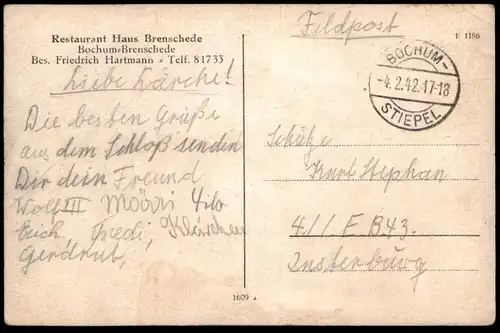 Restaurant Haus Brenschede
Bochum-Brenschede
Bes. Friedrich Hartmann - Telf. 81733
Liebe
Die besten Grüße
aus dem Schloß senden
Dir dein Freund
Wolf III
Erich Fredi, Klärchen
Gerdrut,
Feldpost
F 1186
BOCHUM-
-4.2.42.17-18
STIEPEL
Schütze
Kurt Stephan
4./I. E.B.43.
Insterburg
1609 a